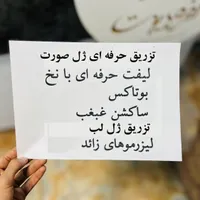 تزریق حرفه ای ژل صورت
لیفت حرفه ای با نخ
بوتاکس
ساکشن غبغب
تزریق ژل لب
لیزرموهای زائد